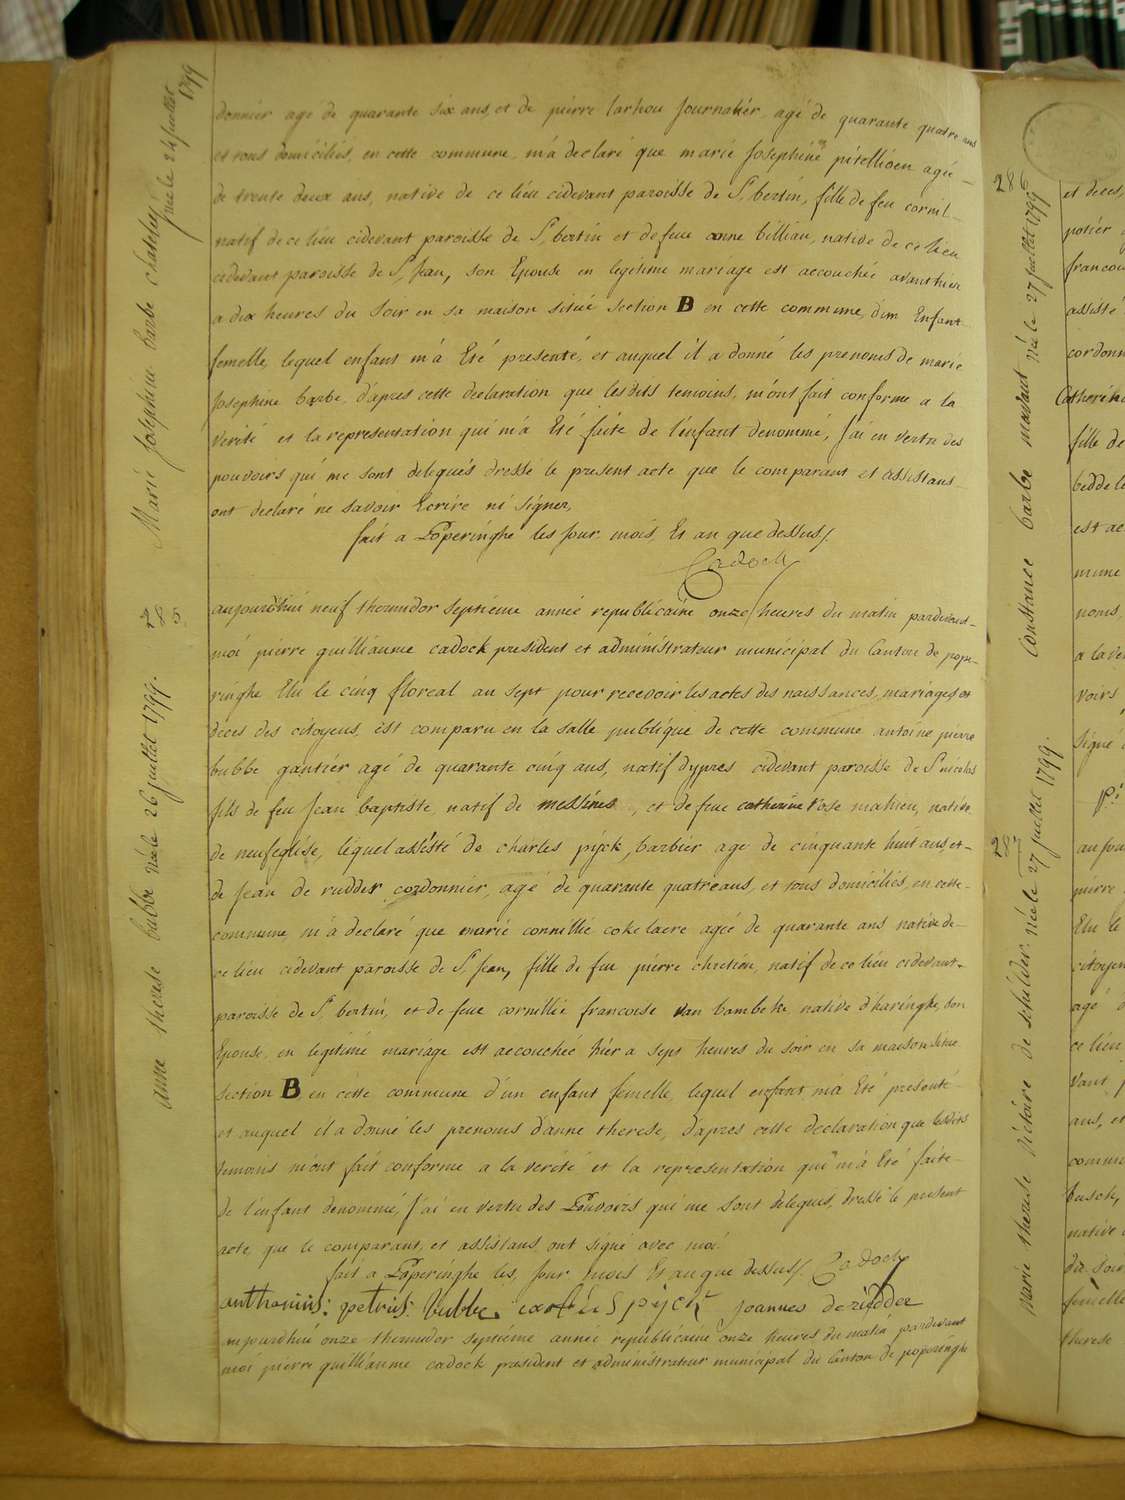 donnier agé de quarante six ans, et de pierre Carhou journalier, agé de quarante quatre ans
et tous domiciliés, en cette commune, m'a declaré que marie Josephine agée
de trente deux ans, native de ce lieu cidevant paroisse de S. bertin, fille de feu cornil
natif de ce lieu cidevant paroisse de S. bertin et de feue anne billiau, native de ce lieu
cidevant paroisse de S. Jean, son Epouse en legitime mariage est accouchée avanthier
a dix heures du soir en sa maison situé section B en cette commune, d'un Enfant
femelle, lequel enfant m'a Eté presenté, et auquel il a donné les prenoms de marie
Josephine barbe, d'apres cette declaration que lesdits temoins, m'ont fait conforme a la
verité et la representation qui m'a Eté faite de l'enfant denommé, J'ai en vertu des
pouvoirs qui me sont delegués dressé le present acte que le comparant et assistans
ont declaré ne savoir Ecrire ni signer,
fait a Poperinghe les jour mois Et an que dessus/.
Cadock
aujourdhui neuf thermidor septieme année republicaine onze heures du matin pardevant
moi pierre guilliaume cadock president et administrateur municipal du Canton de pope-
ringhe Elu le cinq floreal an sept pour recevoir les actes des naissances, mariages et
deces des citoyens, est comparu en la salle publique de cette commune antoine pierre
bubbe gantier agé de quarante cinq ans, natif dypres cidevant paroisse de S nicolas
fils de feu Jean baptiste, natif de messines, et de feue catherine rose mahieu, native
de neufeglise, lequel assisté de charles pyck, barbier age de cinquante huit ans et
de Jean de rudder cordonnier, agé de quarante quatre ans, et tous domiciliés, en cette
commune m'a declaré que marie cornillie cokelaere agée de quarante ans native de
ce lieu cidevant paroisse de S. Jean, fille de feu pierre chretien, natif de ce lieu cidevant
paroisse de S. bertin, et de feue cornillie francoise van bambeke native d'haringhe, son
Epouse, en legitime mariage est accouchée hier a sept heures du soir en sa maison située
section B en cette commune d'un enfant femelle, lequel enfant m'a Eté presenté
et auquel il a donné les prenoms d'anne therese, d'apres cette declaration que lesdits
temoins m'ont fait conforme a la verité et la representation qui m'a Eté faite
de l'enfant denommé, J'ai en vertu des Pouvoirs qui me sont delegués, dressé le present
acte, que le comparant, et assistans, ont signé avec moi
fait a Poperinghe les, jour mois Et an que dessus/. Cadock
anthonius: petrus: bubbe. carolus pyck joannes de rudder
aujourdhui onze thermidor septieme année republicaine onze heures du matin pardevant
moi pierre guilliaume cadock president et administrateur municipal du Canton de poperinghe
Marie Josephine barbe
née le 24 juillet
1799
285
anne therese bubbe née le 26 juillet 1799.
286
Constance barbe née le 27 juillet 1799
287
Marie therese Victoire de née le 27 juillet 1799.
et deces,
potier
francois
assisté
cordonn
Catherine
fille de
est ac
mune
noms,
a la ve
voirs
signé
aujou
pierre
Elu le
citoyen
agé
ce lieu
vant, p
ans, et
commu
native
femelle
therese